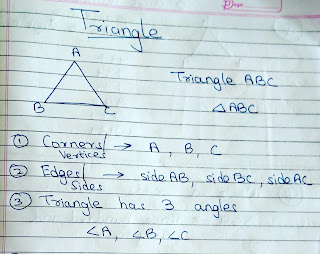 Triangle
A
B C
Triangle ABC
△ ABC
① Corners/Vertices → A, B, C
② Edges/Sides → side AB, side BC, side AC
③ Triangle has 3 angles
∠A, ∠B, ∠C